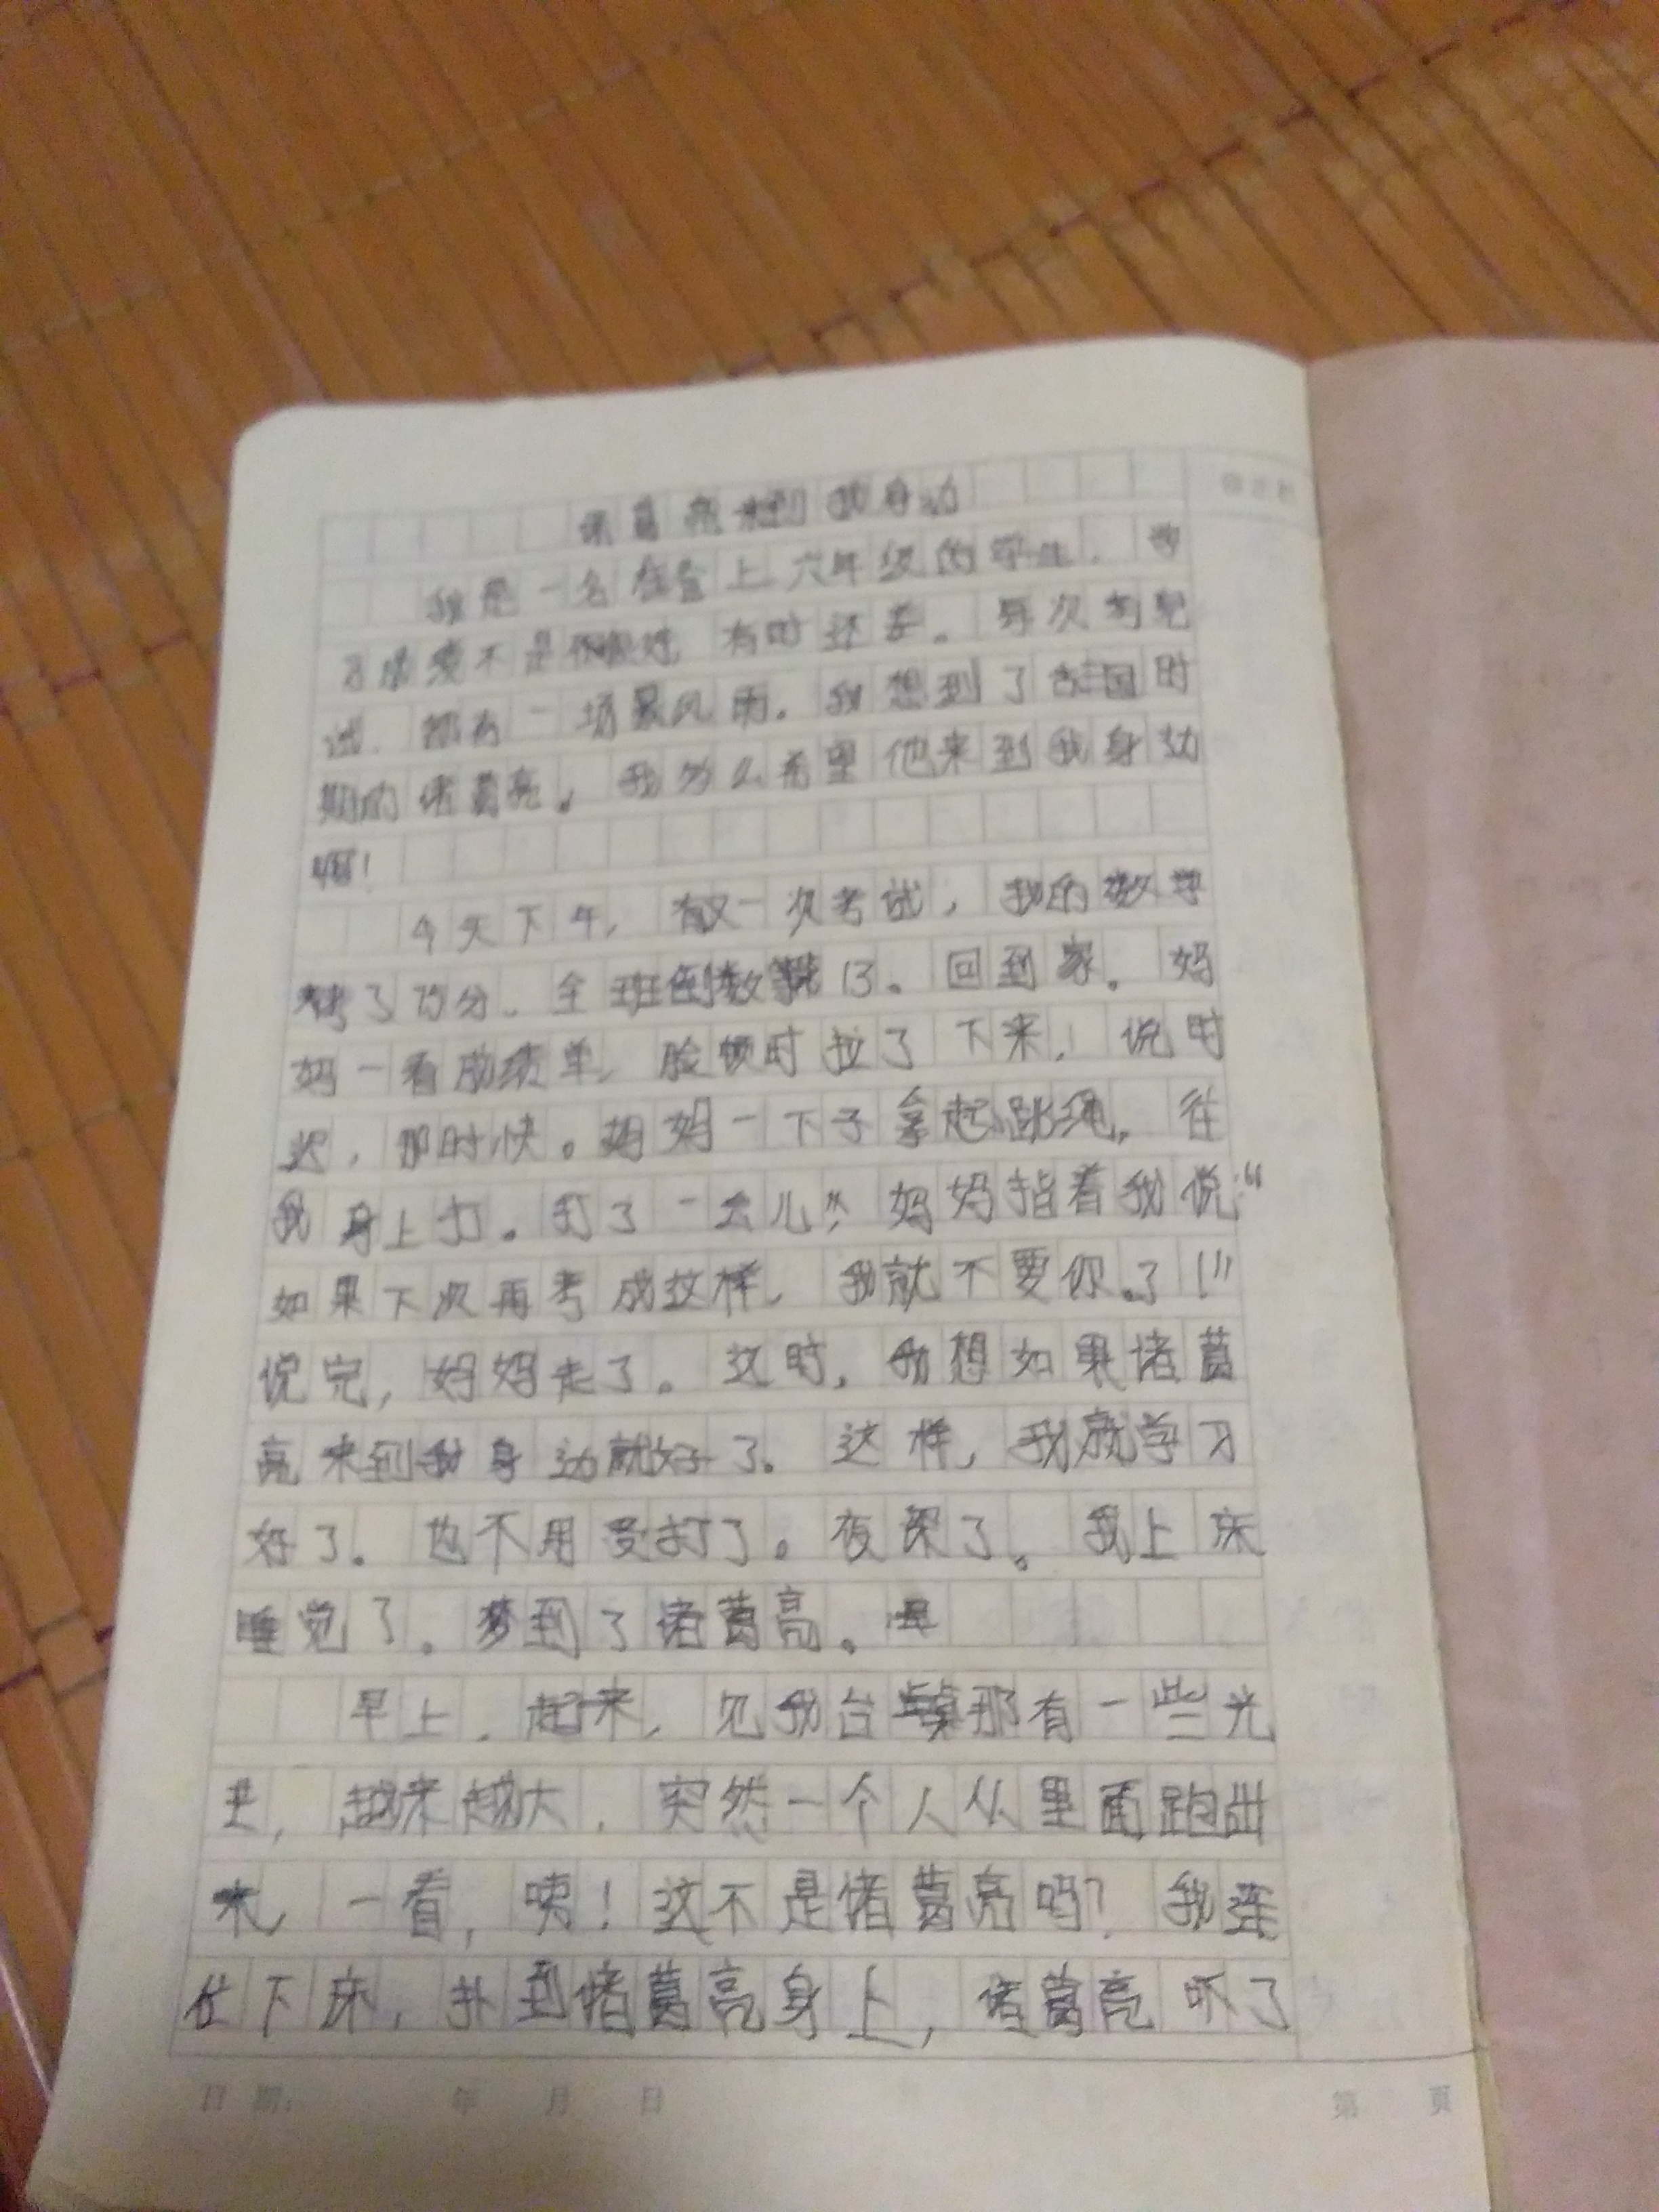 诸葛亮来到我身边
我是一名在 上六年级的学生，学
习成绩不是很好，有时还差。每次考完
试，都有一场暴风雨。我想到了 国时
期的诸葛亮。我多么希望他来到我身边
啊！
今天下午，有一次考试，我的数学
考了 分，全班倒数第13。回到家，妈
妈一看成绩单，脸顿时拉了下来，说时
迟，那时快。妈妈一下子拿起跳绳，往
我身上打。打了一会儿，妈妈指着我说：“
如果下次再考成这样，我就不要你了！”
说完，妈妈走了。这时，我想如果诸葛
亮来到我身边就好了。这样，我就学习
好了。也不用受打了。夜深了。我上床
睡觉了。梦到了诸葛亮。
早上，起来，见我台桌那有一些光
，越来越大，突然一个人从里面跑出
来，一看，咦！这不是诸葛亮吗？我连
忙下床，扑到诸葛亮身上，诸葛亮 了
日期： 年 月 日
第 页